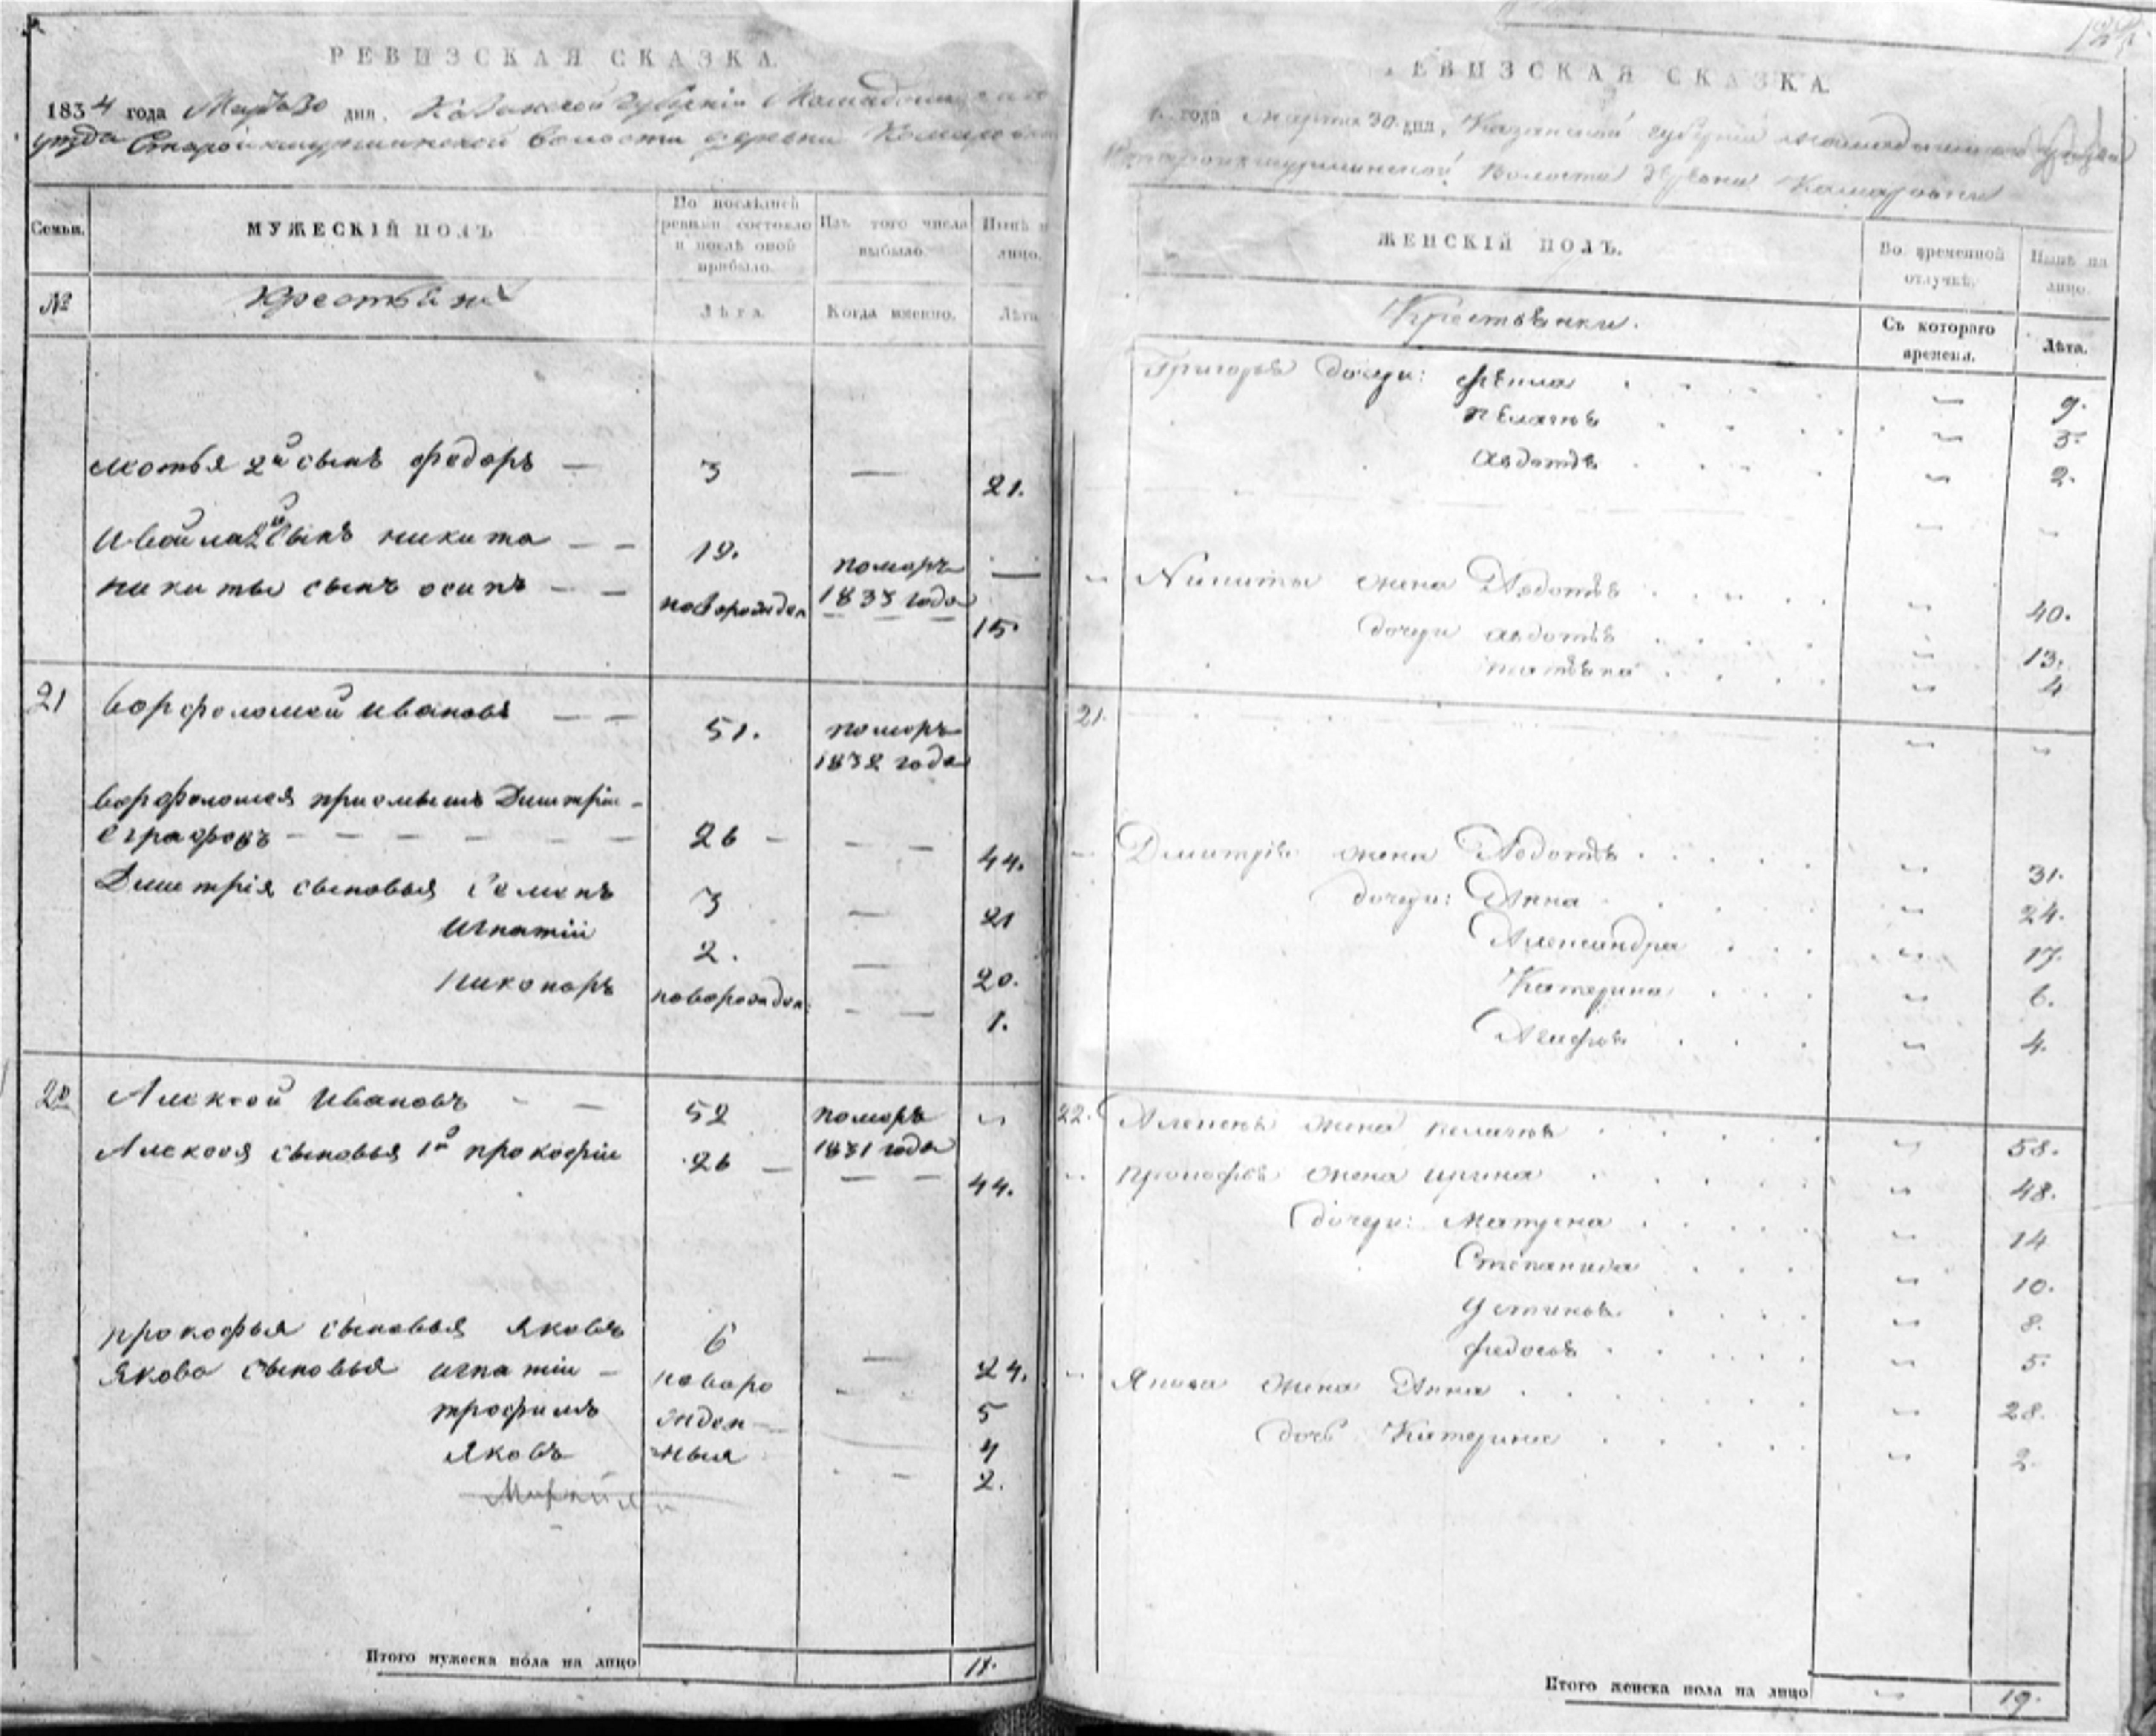 РЕВИЗСКАЯ СКАЗКА.
1834 года Марта 30 дня, Казанской Губернiи Мамадышскаго
уезда Старой кшуршинской волости деревни Комаровки
Семьи.
МУЖЕСКІЙ ПОЛЪ
По послѣдней ревизіи состояло и послѣ оной прибыло.
Изъ того числа выбыло.
Нынѣ на лицо.
№
Крестьяне
Лѣта.
Когда именно.
Лѣта
мотвя 2й сынъ федоръ — 3 — 21.
2й сынъ никита — — 19. померъ —
никиты сынъ осипъ — — новорожден 1833 года 15
21 Ворфоломей ивановъ — — 51. померъ
1832 года
Ворфоломея приомышъ Димтріи -
26 — — — 44.
Димтрія сыновья Семенъ 3 — 21
Игнатіи 2. — 20.
Никоноръ новорожден: — — 1.
22 Алексей Ивановъ - — 52 померъ "
1831 года
Алексея сыновья 1й прокофіи 26 — — — 44.
прокофья сыновья яковъ 6 — 24.
якова сыновья игнатіи — новоро - 5
трофимъ жден— 4
яковъ ныя - 2.
Итого мужеска пола на лицо 11.
РЕВИЗСКАЯ СКАЗКА.
года марта 30 дня, Казанской губерніи мамадышскаго уезда
Старокшуршинской Волости деревни Комаровки
ЖЕНСКІЙ ПОЛЪ.
Во временной отлучкѣ.
Нынѣ на лицо.
Крестьянки.
Съ котораго времени.
Лѣта.
Григорья дочери: фекла " 9.
пелагея " 5.
авдотья " 2.
" Никиты жена Авдотья " 40.
дочери авдотья " 13.
татьяна " 4
21. " "
- Дмитрія жена Авдотья " 31.
дочери: Анна " 24.
Александра " 17.
Катерина " 6.
" 4.
22. Алексея жена пелагея " 58.
" прокофья жена ирина " 48.
дочери: Матрена " 14
Степанида " 10.
устинья " 8.
федосья " 5.
" Якова жена Анна " 28.
дочь Катерина " 2.
Итого женска пола на лицо " 19.